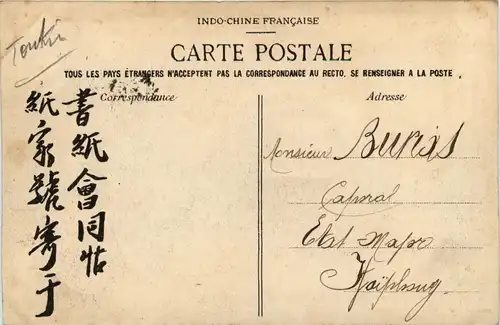 Tonkin
INDO-CHINE FRANÇAISE
CARTE POSTALE
TOUS LES PAYS ÉTRANGERS N'ACCEPTENT PAS LA CORRESPONDANCE AU RECTO. SE RENSEIGNER A LA POSTE
Correspondance
Adresse
書紙會同帖
紙家號寄于
Monsieur
Caporal
Etat Major
Haïphong